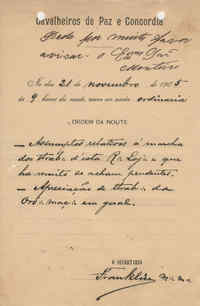 Cavalheiros de Paz e Concordia
Pede por muito favor
avisar o Exmo Snr
Monteiro
No dia 21 de novembro de 1905
ás 9 horas da noute, haverá sessão ordinaria
ORDEM DA NOUTE
— Assumptos relativos á marcha
dos trab∴ d'esta R∴ Loja e que
ha muito se acham pendentes.
— Apreciação de trab∴ da
Ord∴ maç∴ em geral.
O SECRETARIO
Franklin